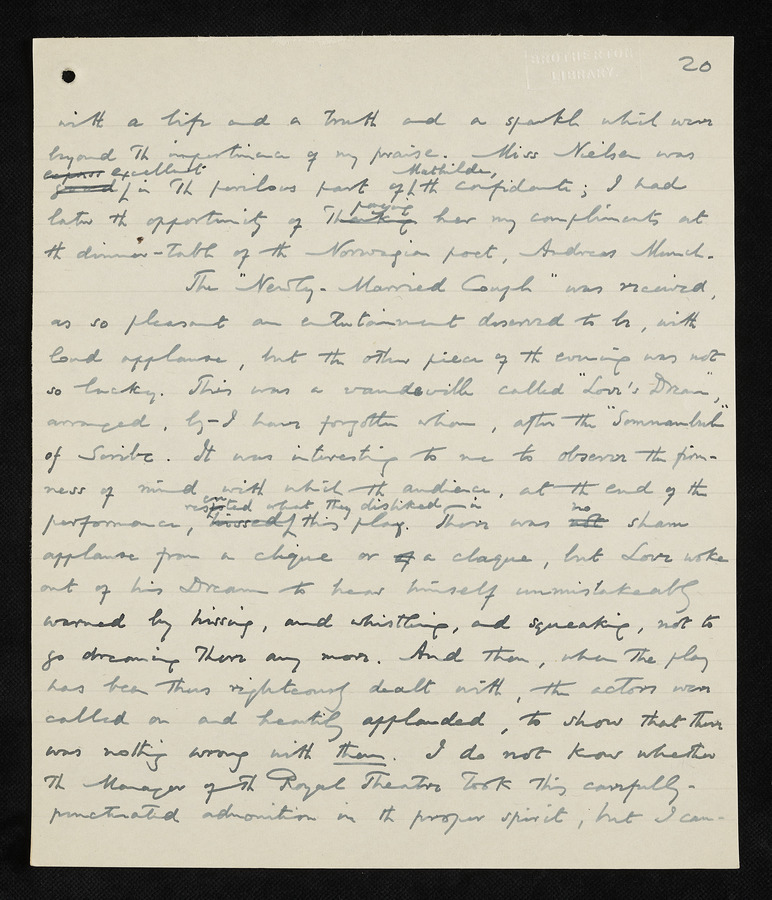 BROTHERTON
LIBRARY
20
with a life and a truth and a sparkle which were
beyond the impertinence of my praise. Miss Nielsen was
excellent Mathilde,
good in the perilous part of the confidante; I had
paying
later the opportunity of making her my compliments at
the dinner-table of the Norwegian poet, Andreas Munch.
The "Newly-Married Couple" was received,
as so pleasant an entertainment deserved to be, with
loud applause, but the other piece of the evening was not
so lucky. This was a vaudeville called "Love's Dream",
arranged, by-I have forgotten whom, after the "Somnambule"
of Scribe. It was interesting to me to observe the firm-
ness of mind with which the audience, at the end of the
resented what they disliked in no
performance, hissed this play. There was not sham
applause from a clique or of a claque, but Love woke
out of his Dream to hear himself unmistakeably
warned by hissing, and whistling, and squeaking, not to
go dreaming there any more. And then, when the play
has been thus righteously dealt with, the actors were
called on and heartily applauded, to show that there
was nothing wrong with them. I do not know whether
the Manager of the Royal Theatre took this carefully-
punctuated admonition in the proper spirit, but I can-